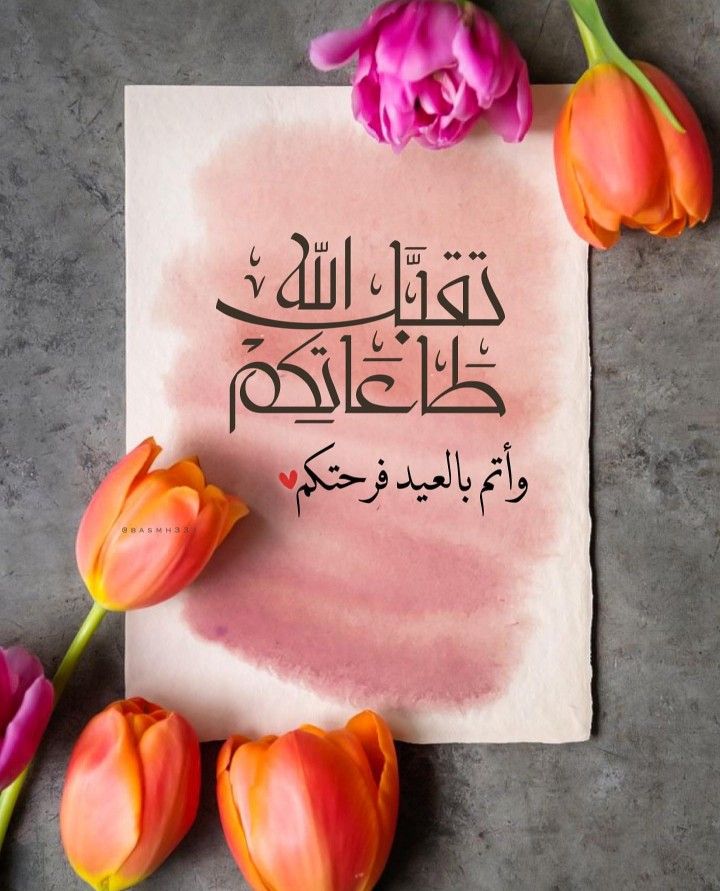 تقبَّل الله
طَاعَاتِكمْ
وأتم بالعيد فرحتكم